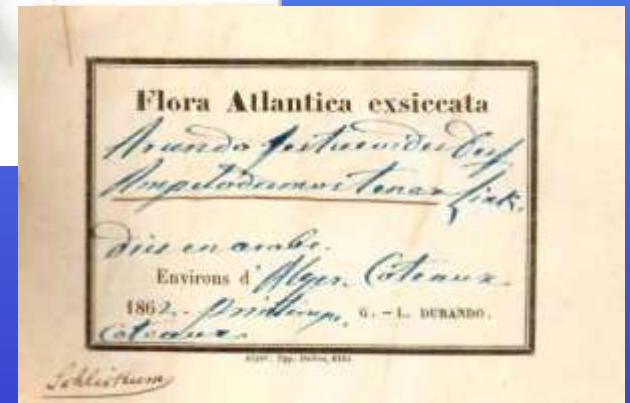 Flora Atlantica exsiccata
Arundo festucoides Desf
Ampelodesmos tenax Link.
diss en arabe.
Environs d'Alger. Coteaux.
1862. printemps. G. - L. DURANDO.
Coteaux.